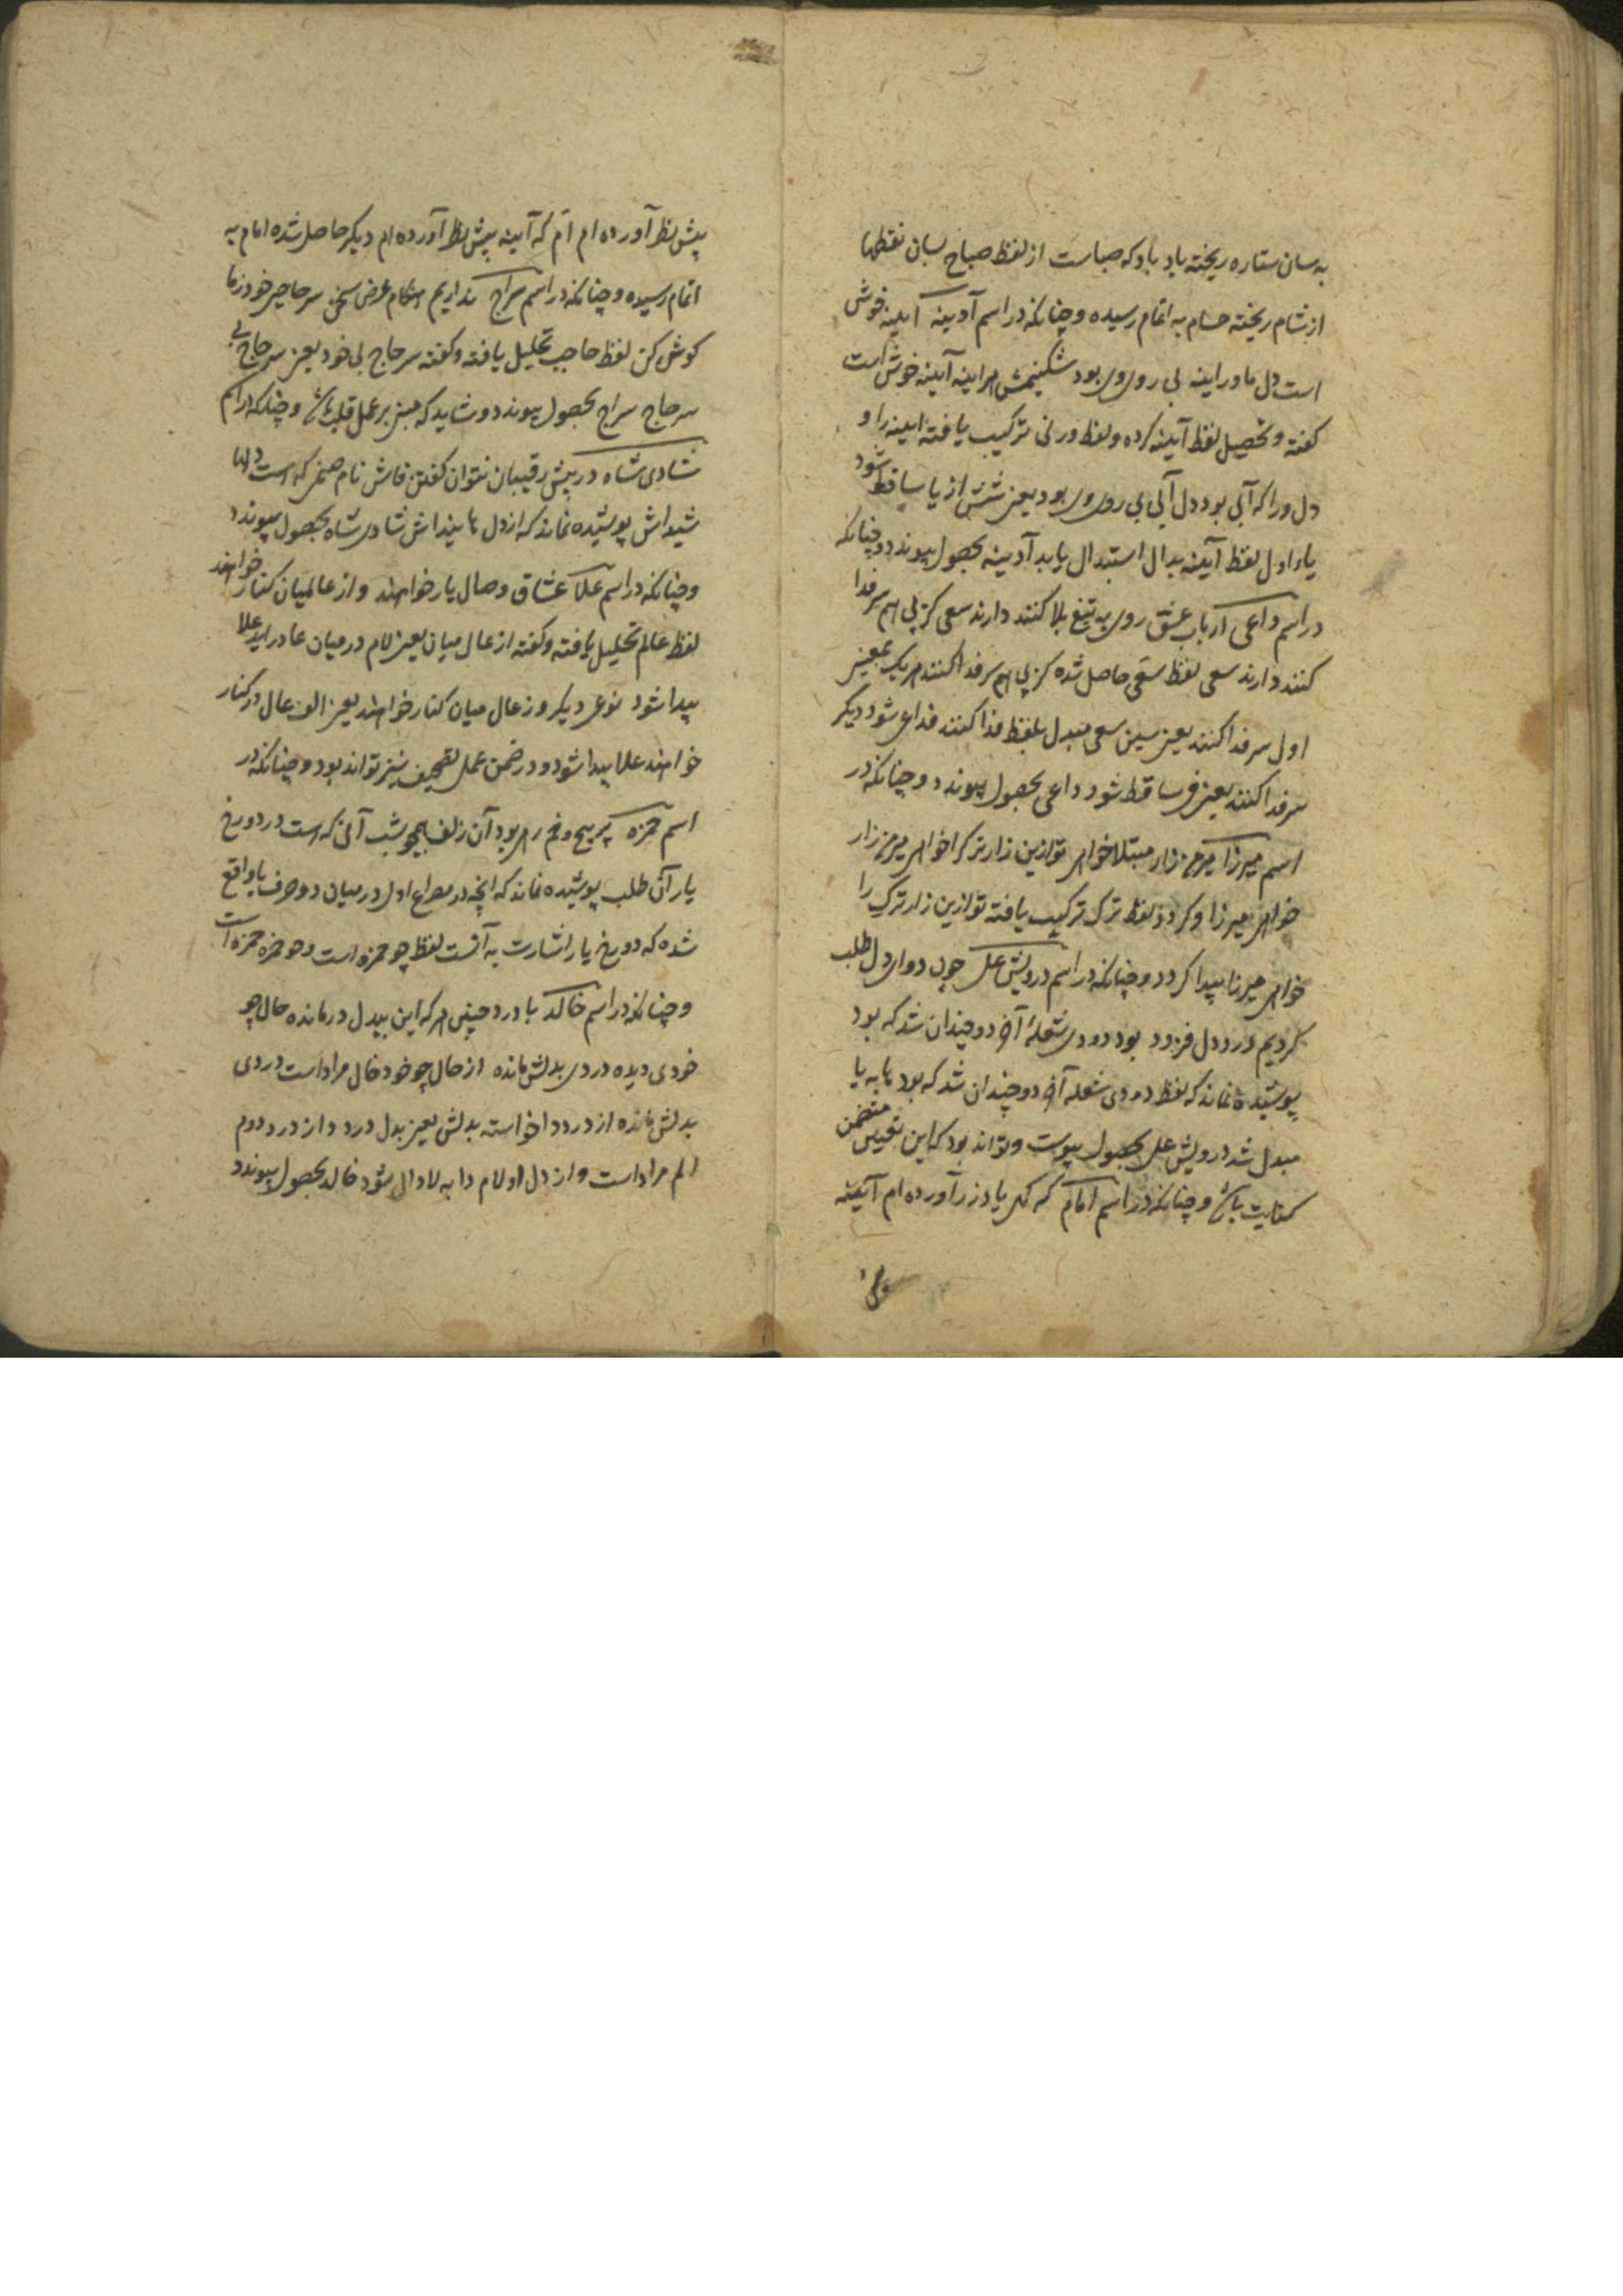 به سان ستاره ریخته باید باد که صباست از لفظ صباح بسان نقطها
از شام ریخته حسام به اتمام رسیده و چنانکه در اسم آدینه آیینه خوش
است دل ما ور اینه بی روی وی بود شکنیمش هر اینه آیینه خوش است
کفته و تحصیل لفظ آیینه کرده و لفظ ورنی ترکیب یافته اینه را و
دل ورا که آبی بود دل آبی بی روی وی بود یعنی شش از یا ساقط شود
یاء اول لفظ آیینه بدال استبدال یابد آدینه بحصول پیوندد و چنانکه
در اسم داعی ارباب عشق روی به تیغ بلا کنند دارند سعی کز پی هم سر فدا
کنند دارند سعی لفظ سعی حاصل شده کز پی هم سر فدا کنند هر یک یعنی
اول سر فدا کنند یعنی سین سعی مبدل بلفظ فدا کنند فداعی شود دیکر
سر فدا کنند یعنی ف ساقط شود داعی بحصول پیوندد و چنانکه در
اسم میرزا میرم زار مبتلا خواهی تو ازین زارتر کرا خواهی میرم زار
خواهی میرزا و کردد لفظ ترک ترکیب یافته تو ازین زار ترک را
خواهی میرزا پیدا کردد و چنانکه در اسم درویش علی چون دوای دل طلب
کردیم درد دل فزود بود دودی شعلهٔ آه دو چندان شد که بود
پوشیده نماند که لفظ دودی شعله آه دو چندان شد که بود با به یا
مبدل شد درویش علی بحصول پیوست و تواند بود که این تعیین متضمن
کنایت باشد و چنانکه در اسم امام که کل یاد زر آورده ام آیینه
پیش نظر آورده ام اَم که آیینه پیش نظر آورده ام دیکر حاصل شده امام به
اتمام رسیده و چنانکه در اسم سراج نداریم هنکام عرض سخن سر حاجبی خود زما
کوش کن لفظ حاجب تحلیل یافته و کفته سر حاج بی خود یعنی سر حاج بی
سر حاج سراج بحصول پیوندد و شاید که مبنی بر عمل قلب باشد و چنانکه در اسم
شادی شاه در پیش رقیبان نتوان کفتن فاش نام صنمی که هست دلها
شیداش پوشیده نماند که از دل ها شیداش شادی شاه بحصول پیوندد
و چنانکه در اسم علا عشاق وصال یار خواهند و از عالمیان کنار خواهند
لفظ عالم تحلیل یافته و کفته از عال میان یعنی لام در میان عا در آید علا
پیدا شود نوعی دیکر وز عال میان کنار خواهند یعنی الف عال در کنار
خواهند علا پیدا شود و در ضمن عمل تصحیف نیز تواند بود و چنانکه در
اسم حمزه پر پیچ و خم ربود آن زلف همچو شب آنی که هست در دو رخ
یار آن طلب پوشیده نماند که آنچه در مصراع اول در میان دو حرف با واقع
شده که دو رخ یار اشارت به آنست لفظ چو حمزه است و هو حمزه حمزه است
و چنانکه در اسم خالد با درد چنینی هر که این بیدل درمانده حال چو
خودی دیده دردی بدلش مانده از حال چو خود خال مراد است دردی
بدلش مانده از درد دا خواسته بدلش یعنی بدل درد دا از درد دوم
الم مراد است و از دل او لام دا به لا دال شود خالد بحصول پیوندد